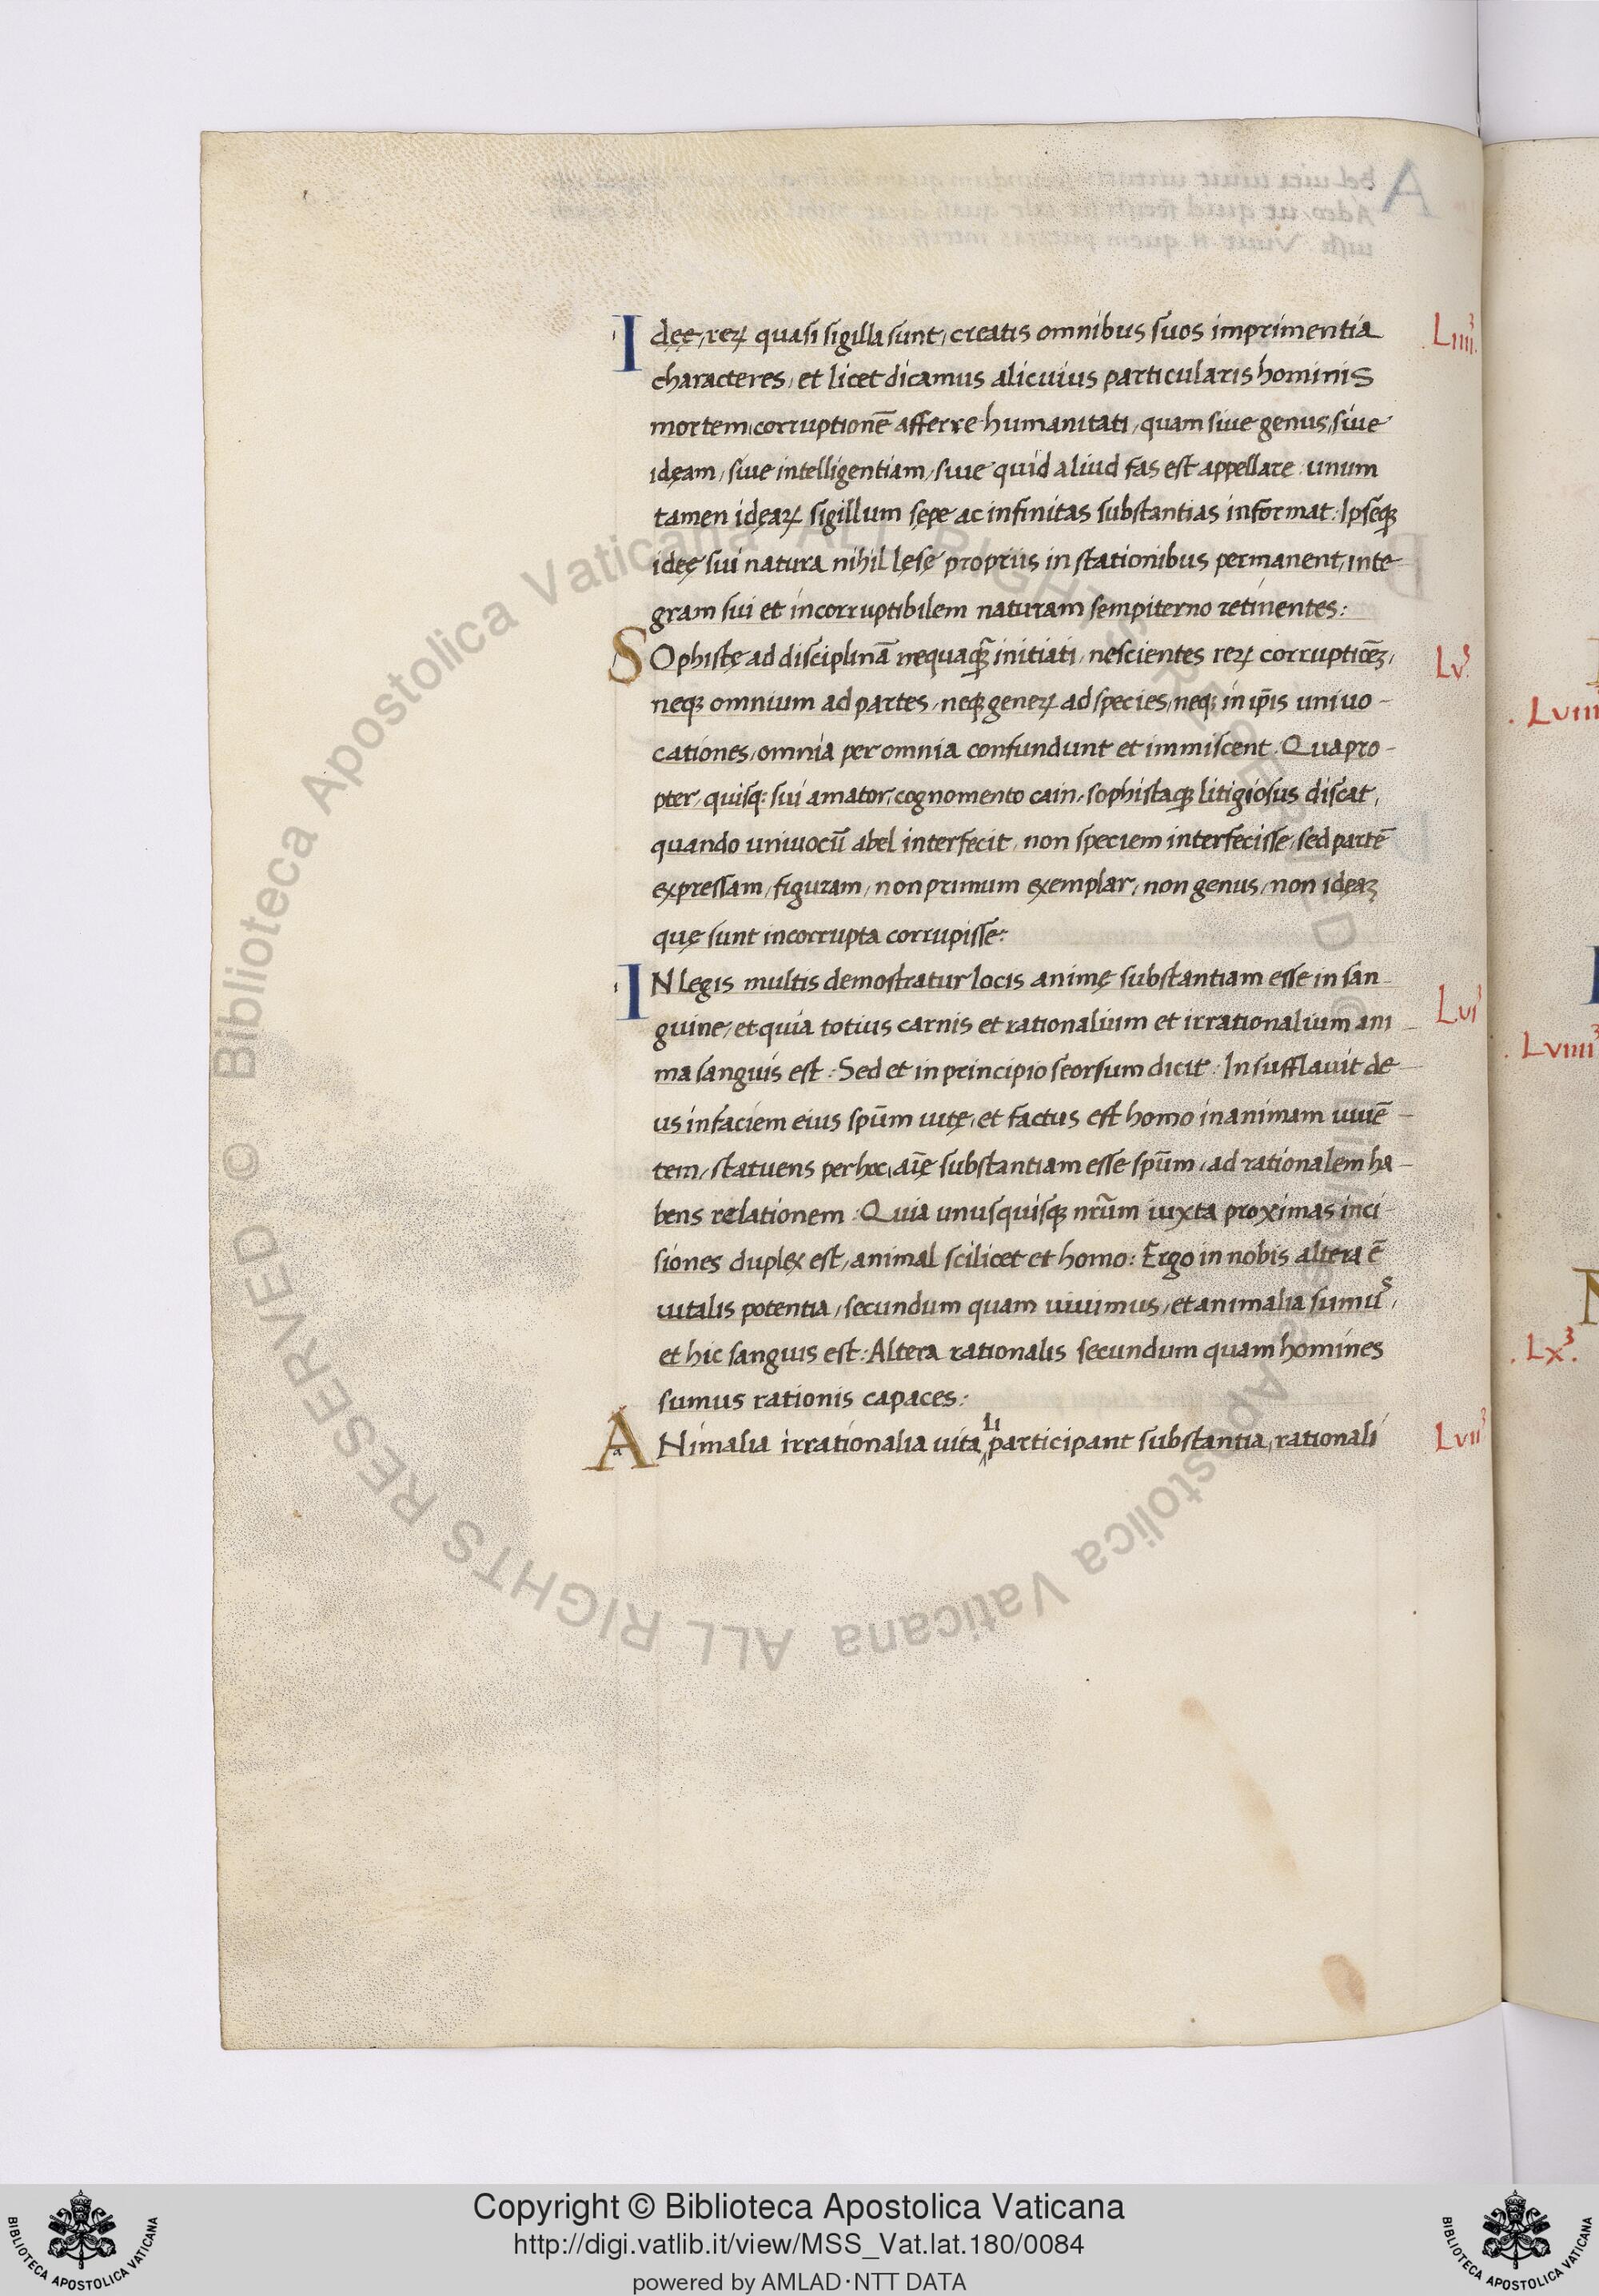 Ideę, reꝝ quasi sigilla sunt, creatis omnibus suos imprimentia
Liiii.
characteres, et licet dicamus alicuius particularis hominis
mortem corruptionē afferre humanitati, quam siue genus, siue
idęam, siue intelligentiam, siue quid aliud fas est appellare: unum
tamen idęaꝝ sigillum sępe ac infinitas substantias informat: Ipsęqꝫ
ideę sui natura nihil lęsę propriis in stationibus permanent, inte-
gram sui et incorruptibilem naturam sempiterno retinentes:
SOphistę ad disciplinā nequaqꝫ initiati, nescientes reꝝ corrupticēꝫ,
Lv
neqꝫ omnium ad partes, neqꝫ geneꝝ ad species, neqꝫ in ip̄is uniuo-
cationes, omnia per omnia confundunt et immiscent. Quapro-
pter, quisqꝫ sui amator, cognomento cain, sophistaqꝫ litigiosus discat,
quando uniuocū abel interfecit, non speciem interfecisse, sed partē
expressam, figuram, non primum exemplar, non genus, non idęaꝫ
quę sunt incorrupta corrupisse:
IN legis multis demostratur locis animę substantiam esse in san-
Lvi
guine, et quia totius carnis et rationalium et irrationalium ani-
ma sanguis est: Sed et in principio seorsum dicit: Insufflauit de-
us in faciem eius spūm uitę, et factus est homo in animam uiuē-
tem, statuens per hoc, aīę substantiam esse spūm, ad rationalem ha-
bens relationem: Quia unusquisqꝫ nrūm iuxta proximas inci-
siones duplex est, animal scilicet et homo: Ergo in nobis altera ē
uitalis potentia, secundum quam uiuimus, et animalia sumus,
et hic sanguis est: Altera rationalis secundum quam homines
sumus rationis capaces:
li
ANimalia irrationalia uita participant substantia, rationali
Lvii
Lviii
Lviiii
.Lx.
© Biblioteca Apostolica Vaticana ALL RIGHTS RESERVED © Biblioteca Apostolica Vaticana ALL RIGHTS RESERVED
Copyright © Biblioteca Apostolica Vaticana
http://digi.vatlib.it/view/MSS_Vat.lat.180/0084
powered by AMLAD·NTT DATA
BIBLIOTECA APOSTOLICA VATICANA
BIBLIOTECA APOSTOLICA VATICANA